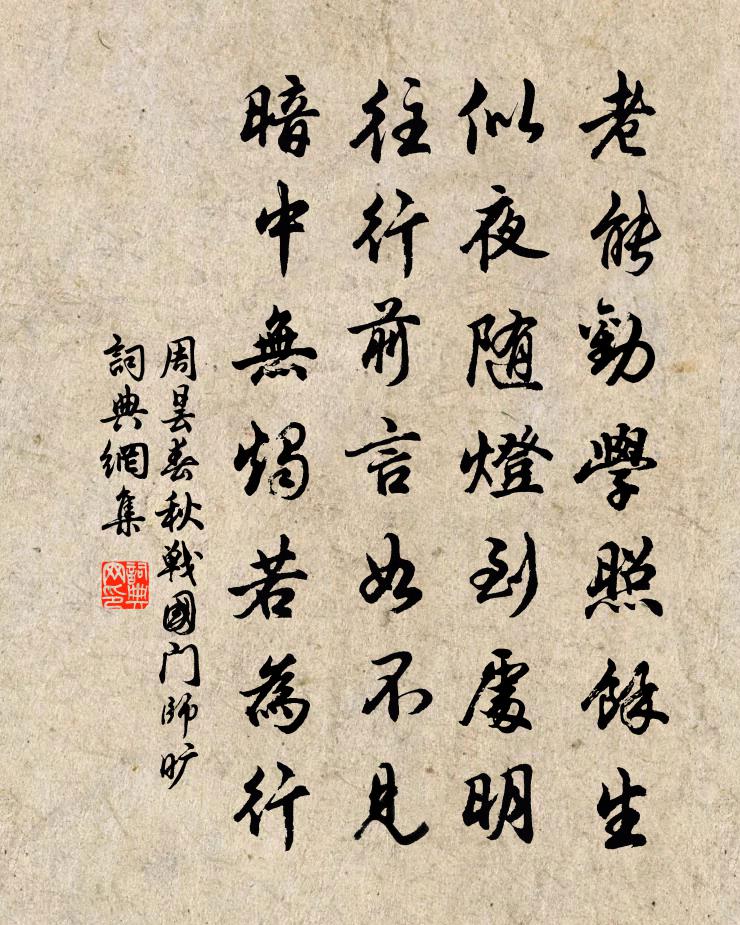 老能勸學照餘生
似夜随燈到處明
往行前言如不見
暗中無燭若為行
周昙春秋戰國門師旷
詞典網集
詞典网